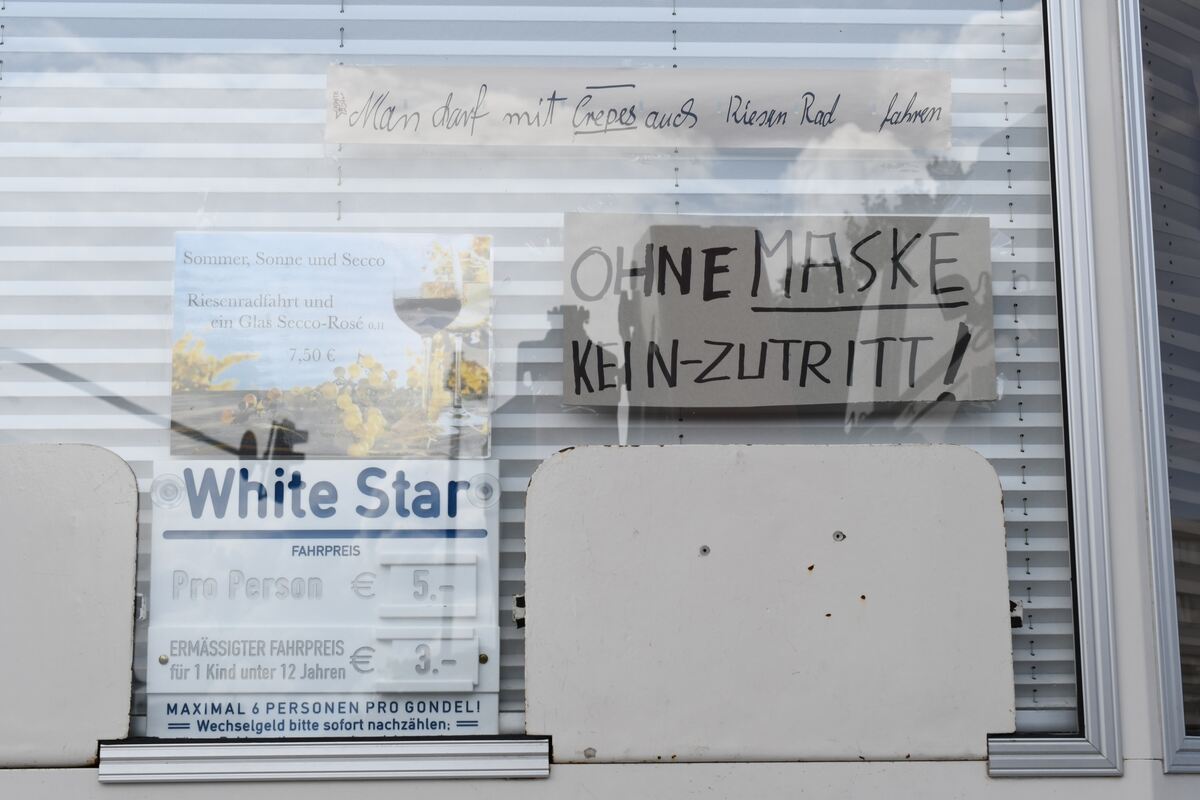 Man darf mit Crepes auch Riesen Rad fahren
OHNE MASKE
KEIN-ZUTRITT!
Sommer, Sonne und Secco
Riesenradfahrt und
ein Glas Secco-Rosé 0,1l
7,50 €
White Star
FAHRPREIS
Pro Person € 5.-
ERMÄSSIGTER FAHRPREIS
für 1 Kind unter 12 Jahren € 3.-
MAXIMAL 6 PERSONEN PRO GONDEL!
Wechselgeld bitte sofort nachzählen: